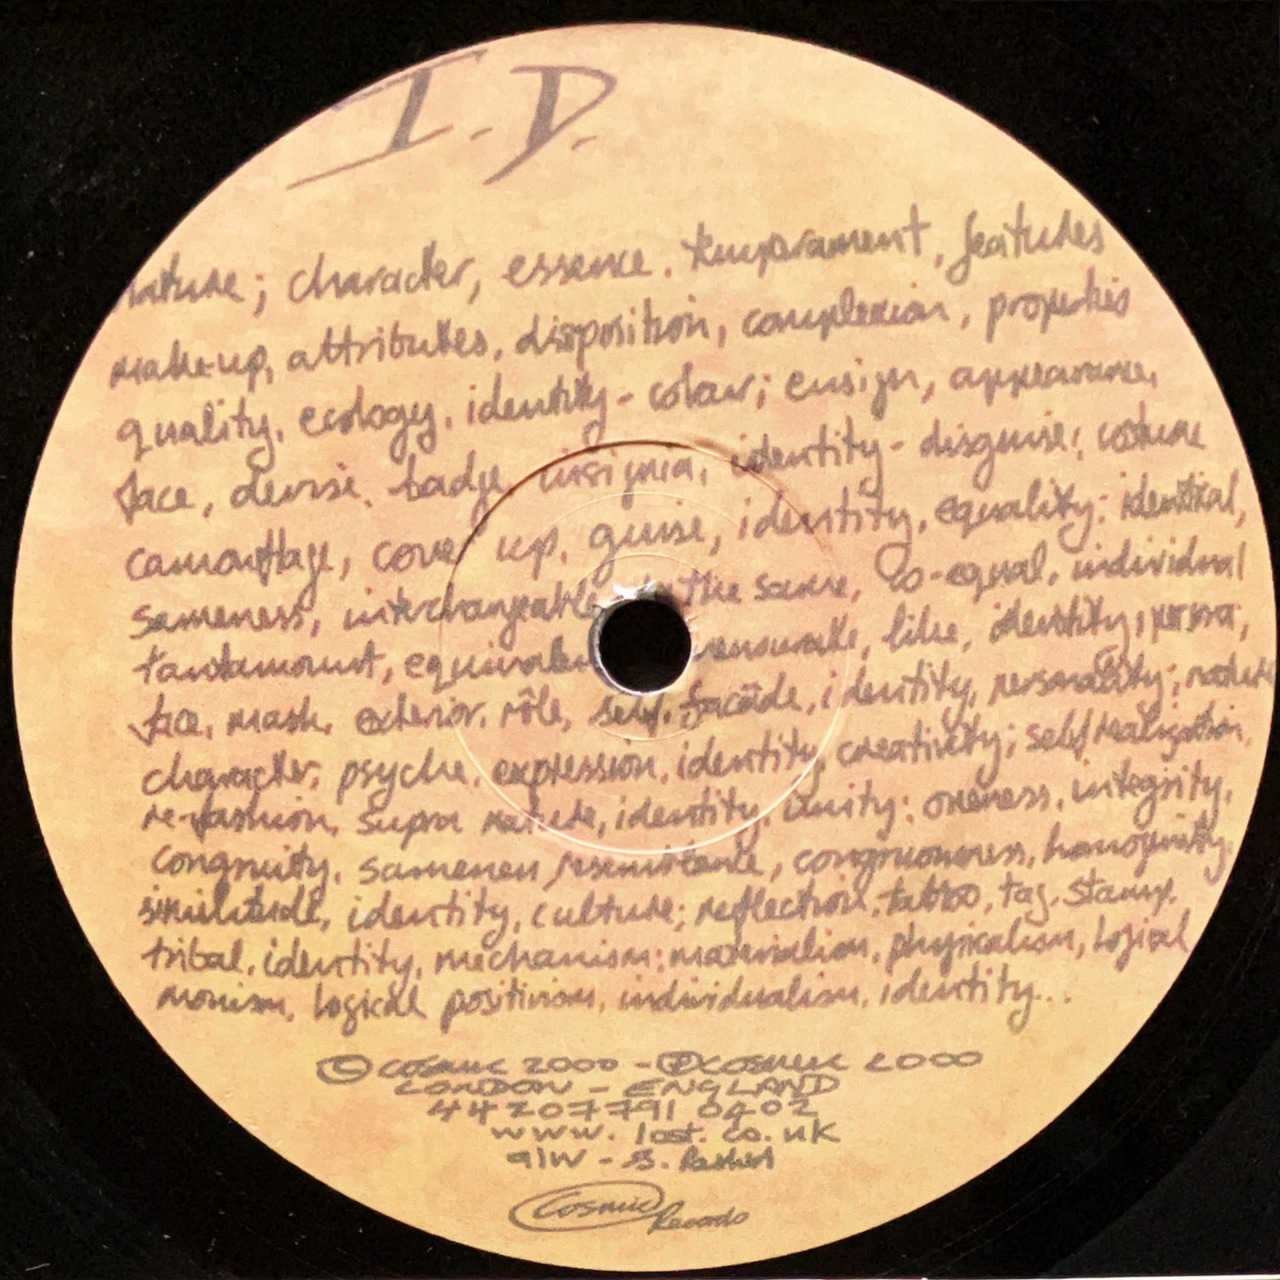 I.D.
nature; character, essence, temperament, features
make-up, attributes, disposition, complexion, properties
quality, ecology, identity - colour; ensign, appearance,
face, devise, badge insignia, identity - disguise; costume
camouflage, cover up, guise, identity, equality: identical,
sameness, interchangeable the same, co-equal, individual
tantamount, equivalen like, identity, persona,
face, mask, exterior, rôle, self, facade, identity, personality; nature
character, psyche, expression, identity, creativity; self/realisation,
re-fashion, supra nature, identity, unity: oneness, integrity,
congruity, sameness, congruousness, homogenity,
similitude, identity, culture; reflection, tattoo, tag, stamp,
tribal, identity, mechanism: materialism, physicalism, logical
monism, logical positivism, individualism, identity...
© COSMIC 2000 - ℗ COSMIC 2000
LONDON - ENGLAND
44 207 791 0402
www. lost. co. uk
a/w - S.
Cosmic Records